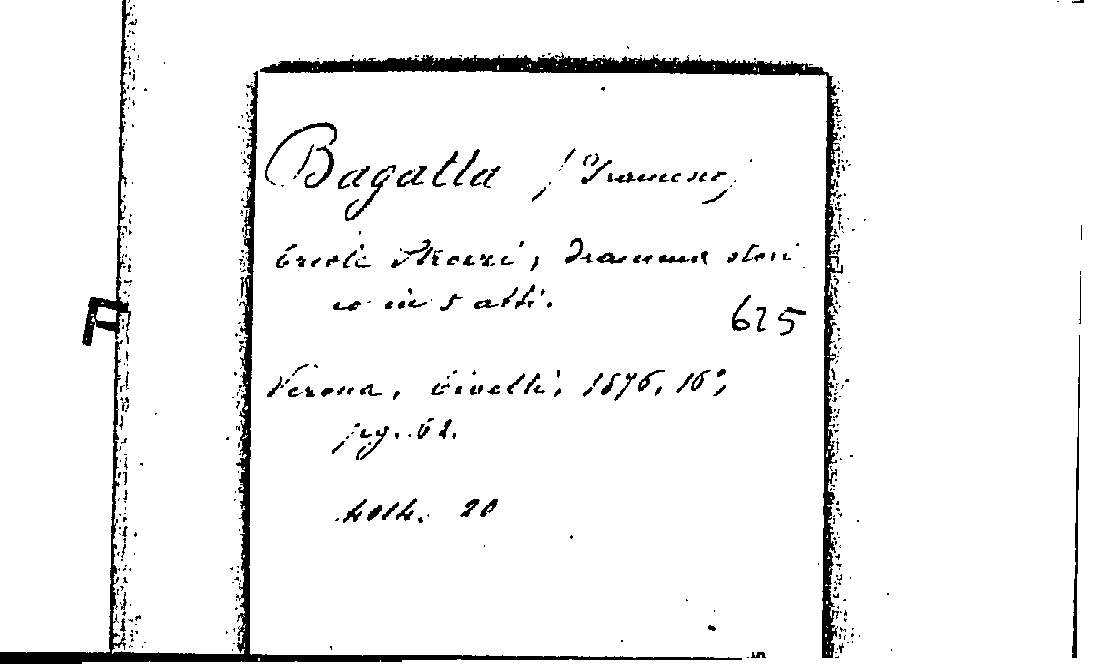 Bagatta (Francesco)
Ercole Strozzi, dramma stori
co in 5 atti.
625
Verona, Civelli, 1876, 16°,
pg. 62.
20